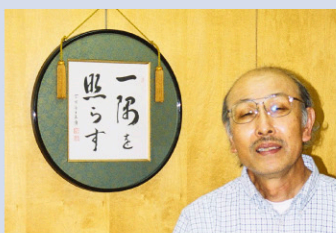 一隅を
照らす